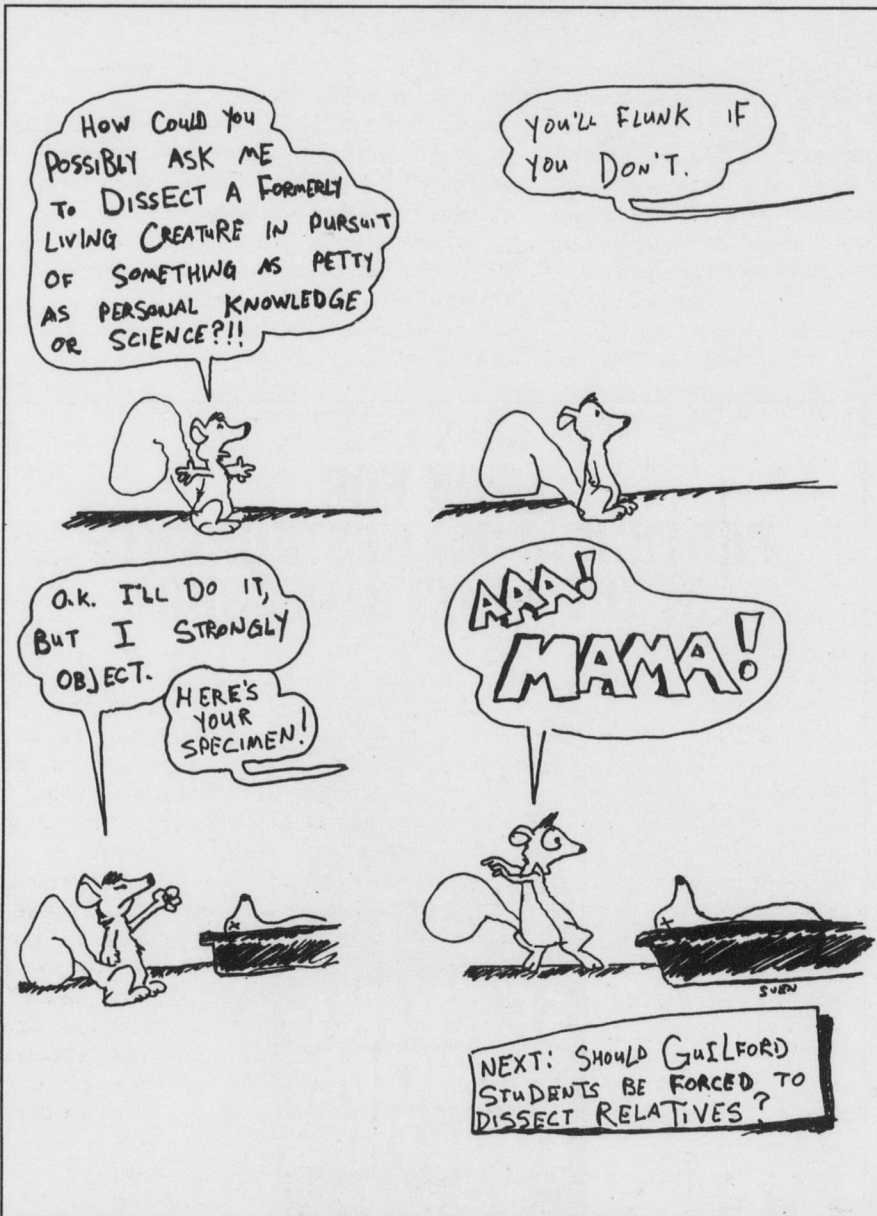 HOW COULD YOU
POSSIBLY ASK ME
TO DISSECT A FORMERLY
LIVING CREATURE IN PURSUIT
OF SOMETHING AS PETTY
AS PERSONAL KNOWLEDGE
OR SCIENCE?!!
YOU'LL FLUNK IF
YOU DON'T.
O.K. I'LL DO IT,
BUT I STRONGLY
OBJECT.
HERE'S
YOUR
SPECIMEN!
AAA!
MAMA!
SVEN
NEXT: SHOULD GUILFORD
STUDENTS BE FORCED TO
DISSECT RELATIVES?